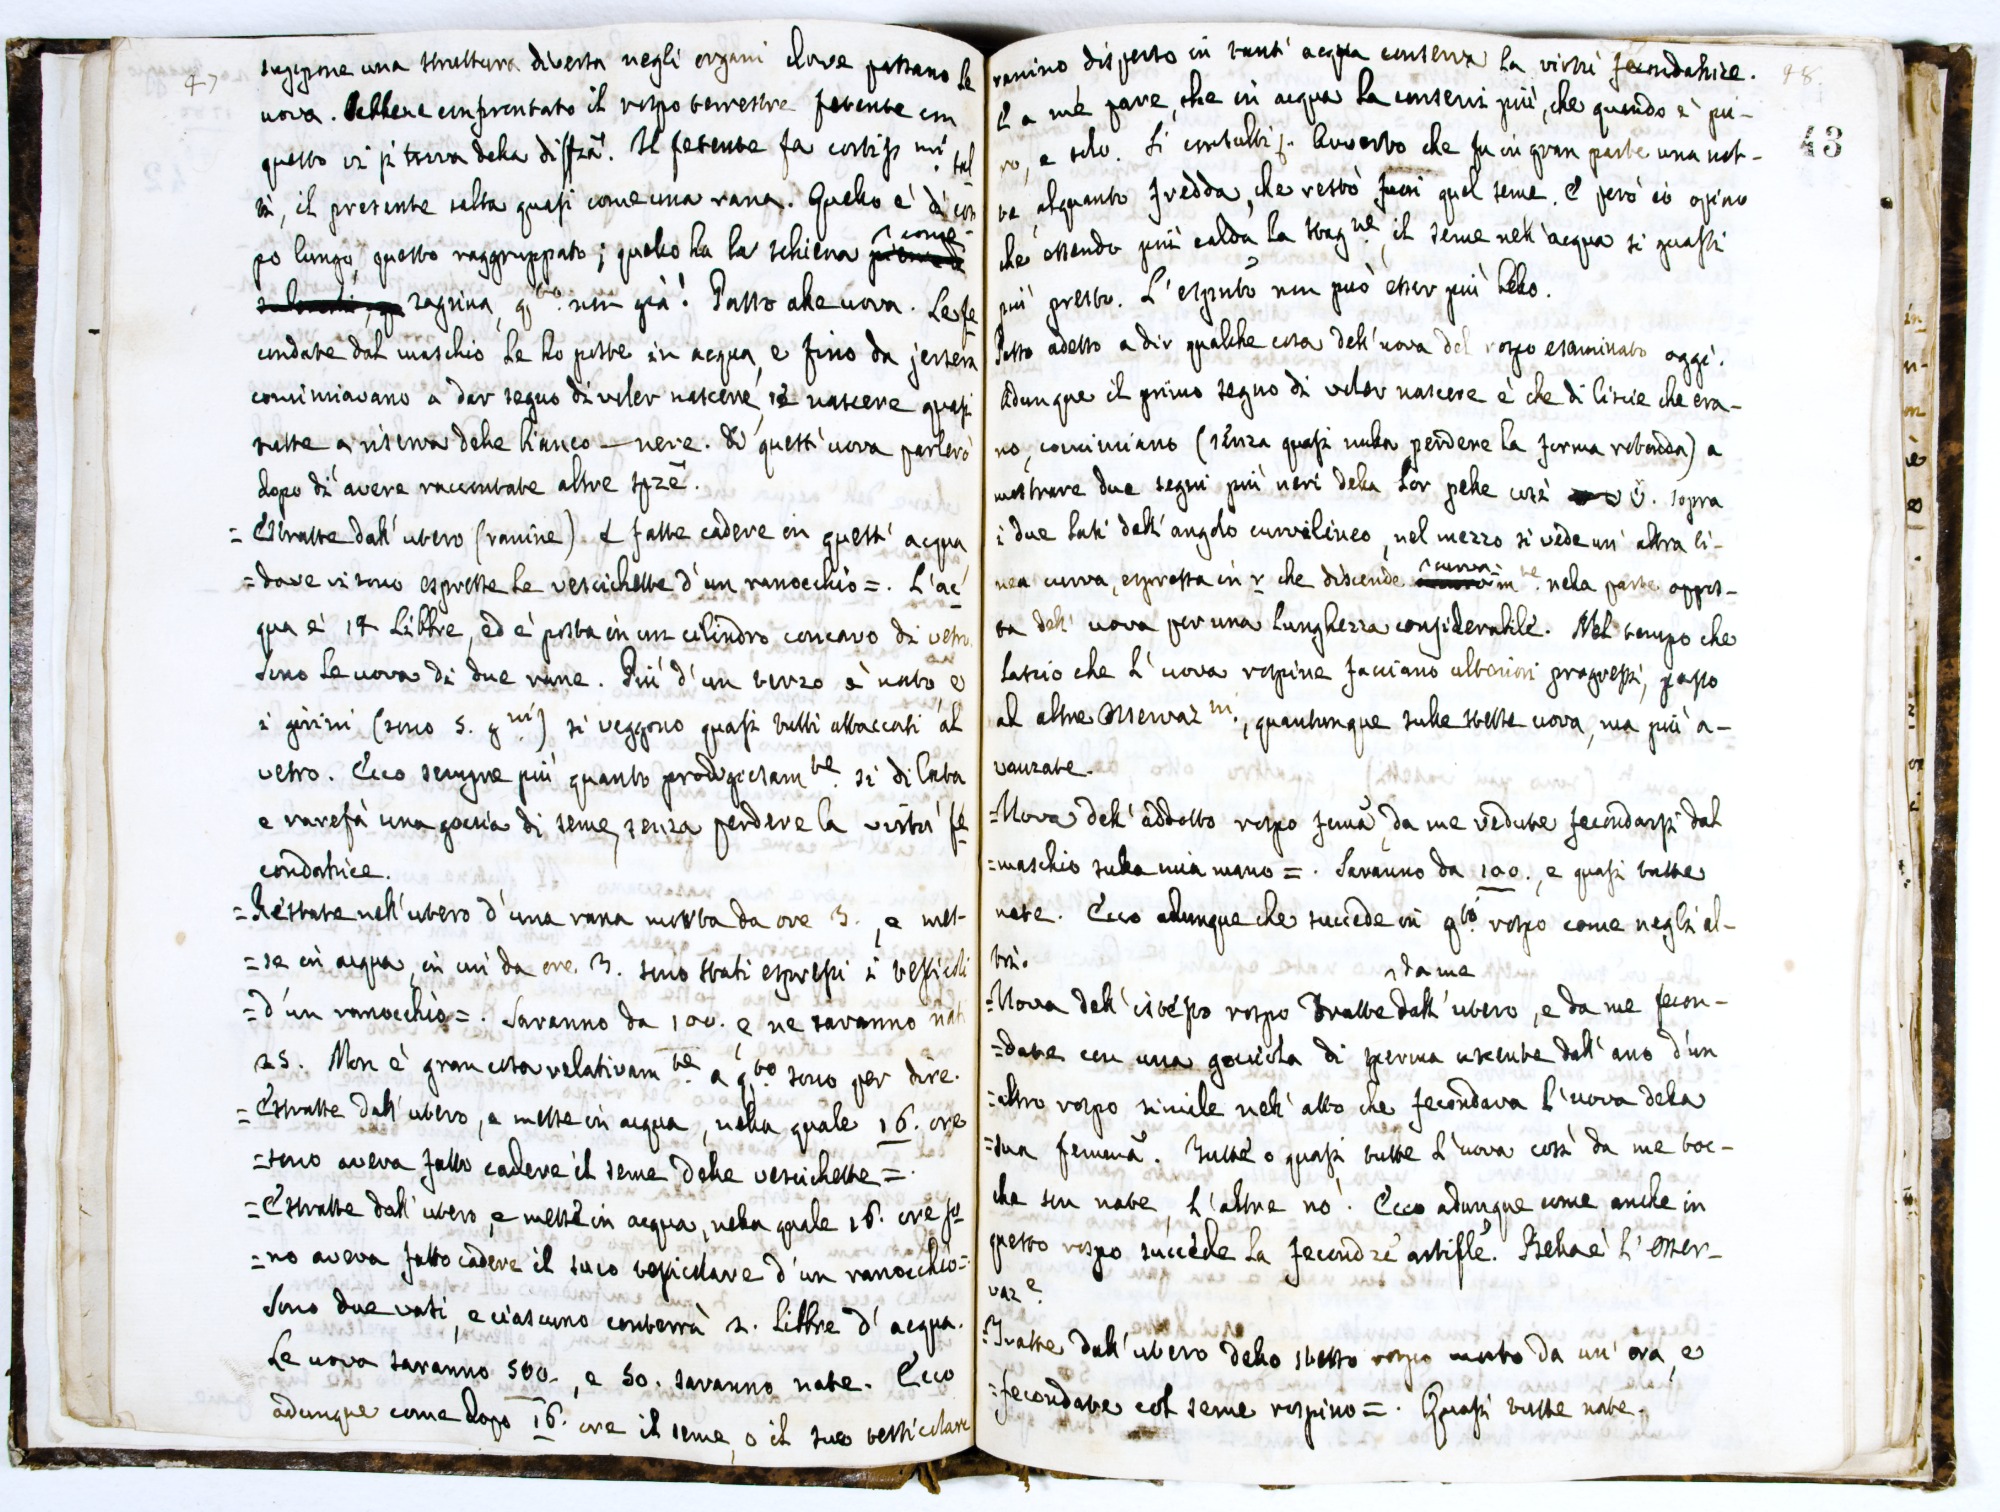 47
suppone una struttura diversa negli organi dove passano le
uova. Ebbene confrontato il rospo terrestre fetente con
questo vi si trova della diffzã. Il fetente fa cortiss.mi sal-
ti, il presente salta quasi come una rana. Quello è di cor-
po lungo, questo raggruppato; quello ha la schiena come
zagrina, q.to non già. Passo alle uova. Le fe-
condate dal maschio le ho poste in acqua, e fino da jersera
cominciavano a dar segno di voler nascere, e nascere quasi
tutte a riserva delle bianco-nere. Di quest'uova parlerò
dopo d'avere raccontate altre spzẽ.
= Estratte dall'utero (ranine) e fatte cadere in quest'acqua
= dove vi sono espresse le vescichette d'un ranocchio =. L'ac-
qua è 14 libbre, ed è posta in un cilindro concavo di vetro.
Sono le uova di due rane. Più d'un terzo è nato, e
i girini (sono 5. g.ni) si veggono quasi tutti attaccati al
vetro. Ecco sempre più quanto prodigiosam.te si dilata
e rarefà una goccia di seme, senza perdere la virtù fe-
condatrice.
= Restate nell'utero d'una rana morta da ore 3., e mes-
= se in acqua, in cui da ore 3. sono stati espressi i testicoli
= d'un ranocchio =. Saranno da 100. e ne saranno nati
25. Non è gran cosa relativam.te a q.to sono per dire.
= Estratte dall'utero, e messe in acqua, nella quale 16. ore
= sono aveva fatto cadere il seme delle vescichette =.
= Estratte dall'utero, e messe in acqua, nella quale 16. ore so-
= no aveva fatto cadere il suco testicolare d'un ranocchio =.
Sono due vasi, e ciascuno conterrà 2. libbre d'acqua.
Le uova saranno 500., e 50. saranno nate. Ecco
adunque come dopo 16. ore il seme, o il suco testicolare
48.
43
ranino disperso in tant'acqua conserva la virtù fecondatrice.
E a me pare, che in acqua la conservi più, che quando è pu-
ro, e solo. Si consulti Avverto che fu in gran parte una not-
te alquanto fredda, che restò fuori quel seme. E però io opino
che essendo più calda la stag.ne, il seme nell'acqua si guasti
più presto. L'esprimto non può esser più bello.
Passo adesso a dir qualche cosa dell'uova del rospo esaminato oggi.
Adunque il primo segno di voler nascere è che di liscie che era-
no, cominciano (senza quasi nulla perdere la forma rotonda) a
mostrare due segni più neri della lor pelle così . Sopra
i due lati dell'angolo curvilineo, nel mezzo si vede un'altra li-
nea curva, espressa in r che discende curvam.te nella parte oppos-
ta dell'uova per una lunghezza considerabile. Nel tempo che
lascio che l'uova rospine facciano ulteriori progressi, passo
ad altre osservaz.ni, quantunque sulle stesse uova, ma più a-
vanzate.
= Uova dell'addotto rospo femã, da me vedute fecondarsi dal
= maschio sulla mia mano =. Saranno da 100., e quasi tutte
nate. Ecco adunque che succede in q.to rospo come negli al-
tri.
= Uova dell'istesso rospo tratte da me dall'utero, e da me fecon-
= date con una gocciola di sperma uscente dall'ano d'un
= altro rospo simile nell'atto che fecondava l'uova della
= sua femmã. Tutte o quasi tutte l'uova così da me toc-
che son nate, l'altre no. Ecco adunque come anche in
questo rospo succede la fecondzẽ artifle. Bella è l'osser-
vaz.e
= Tratte dall'utero dello stesso rospo morto da un'ora, e
= fecondate col seme rospino =. Quasi tutte nate.